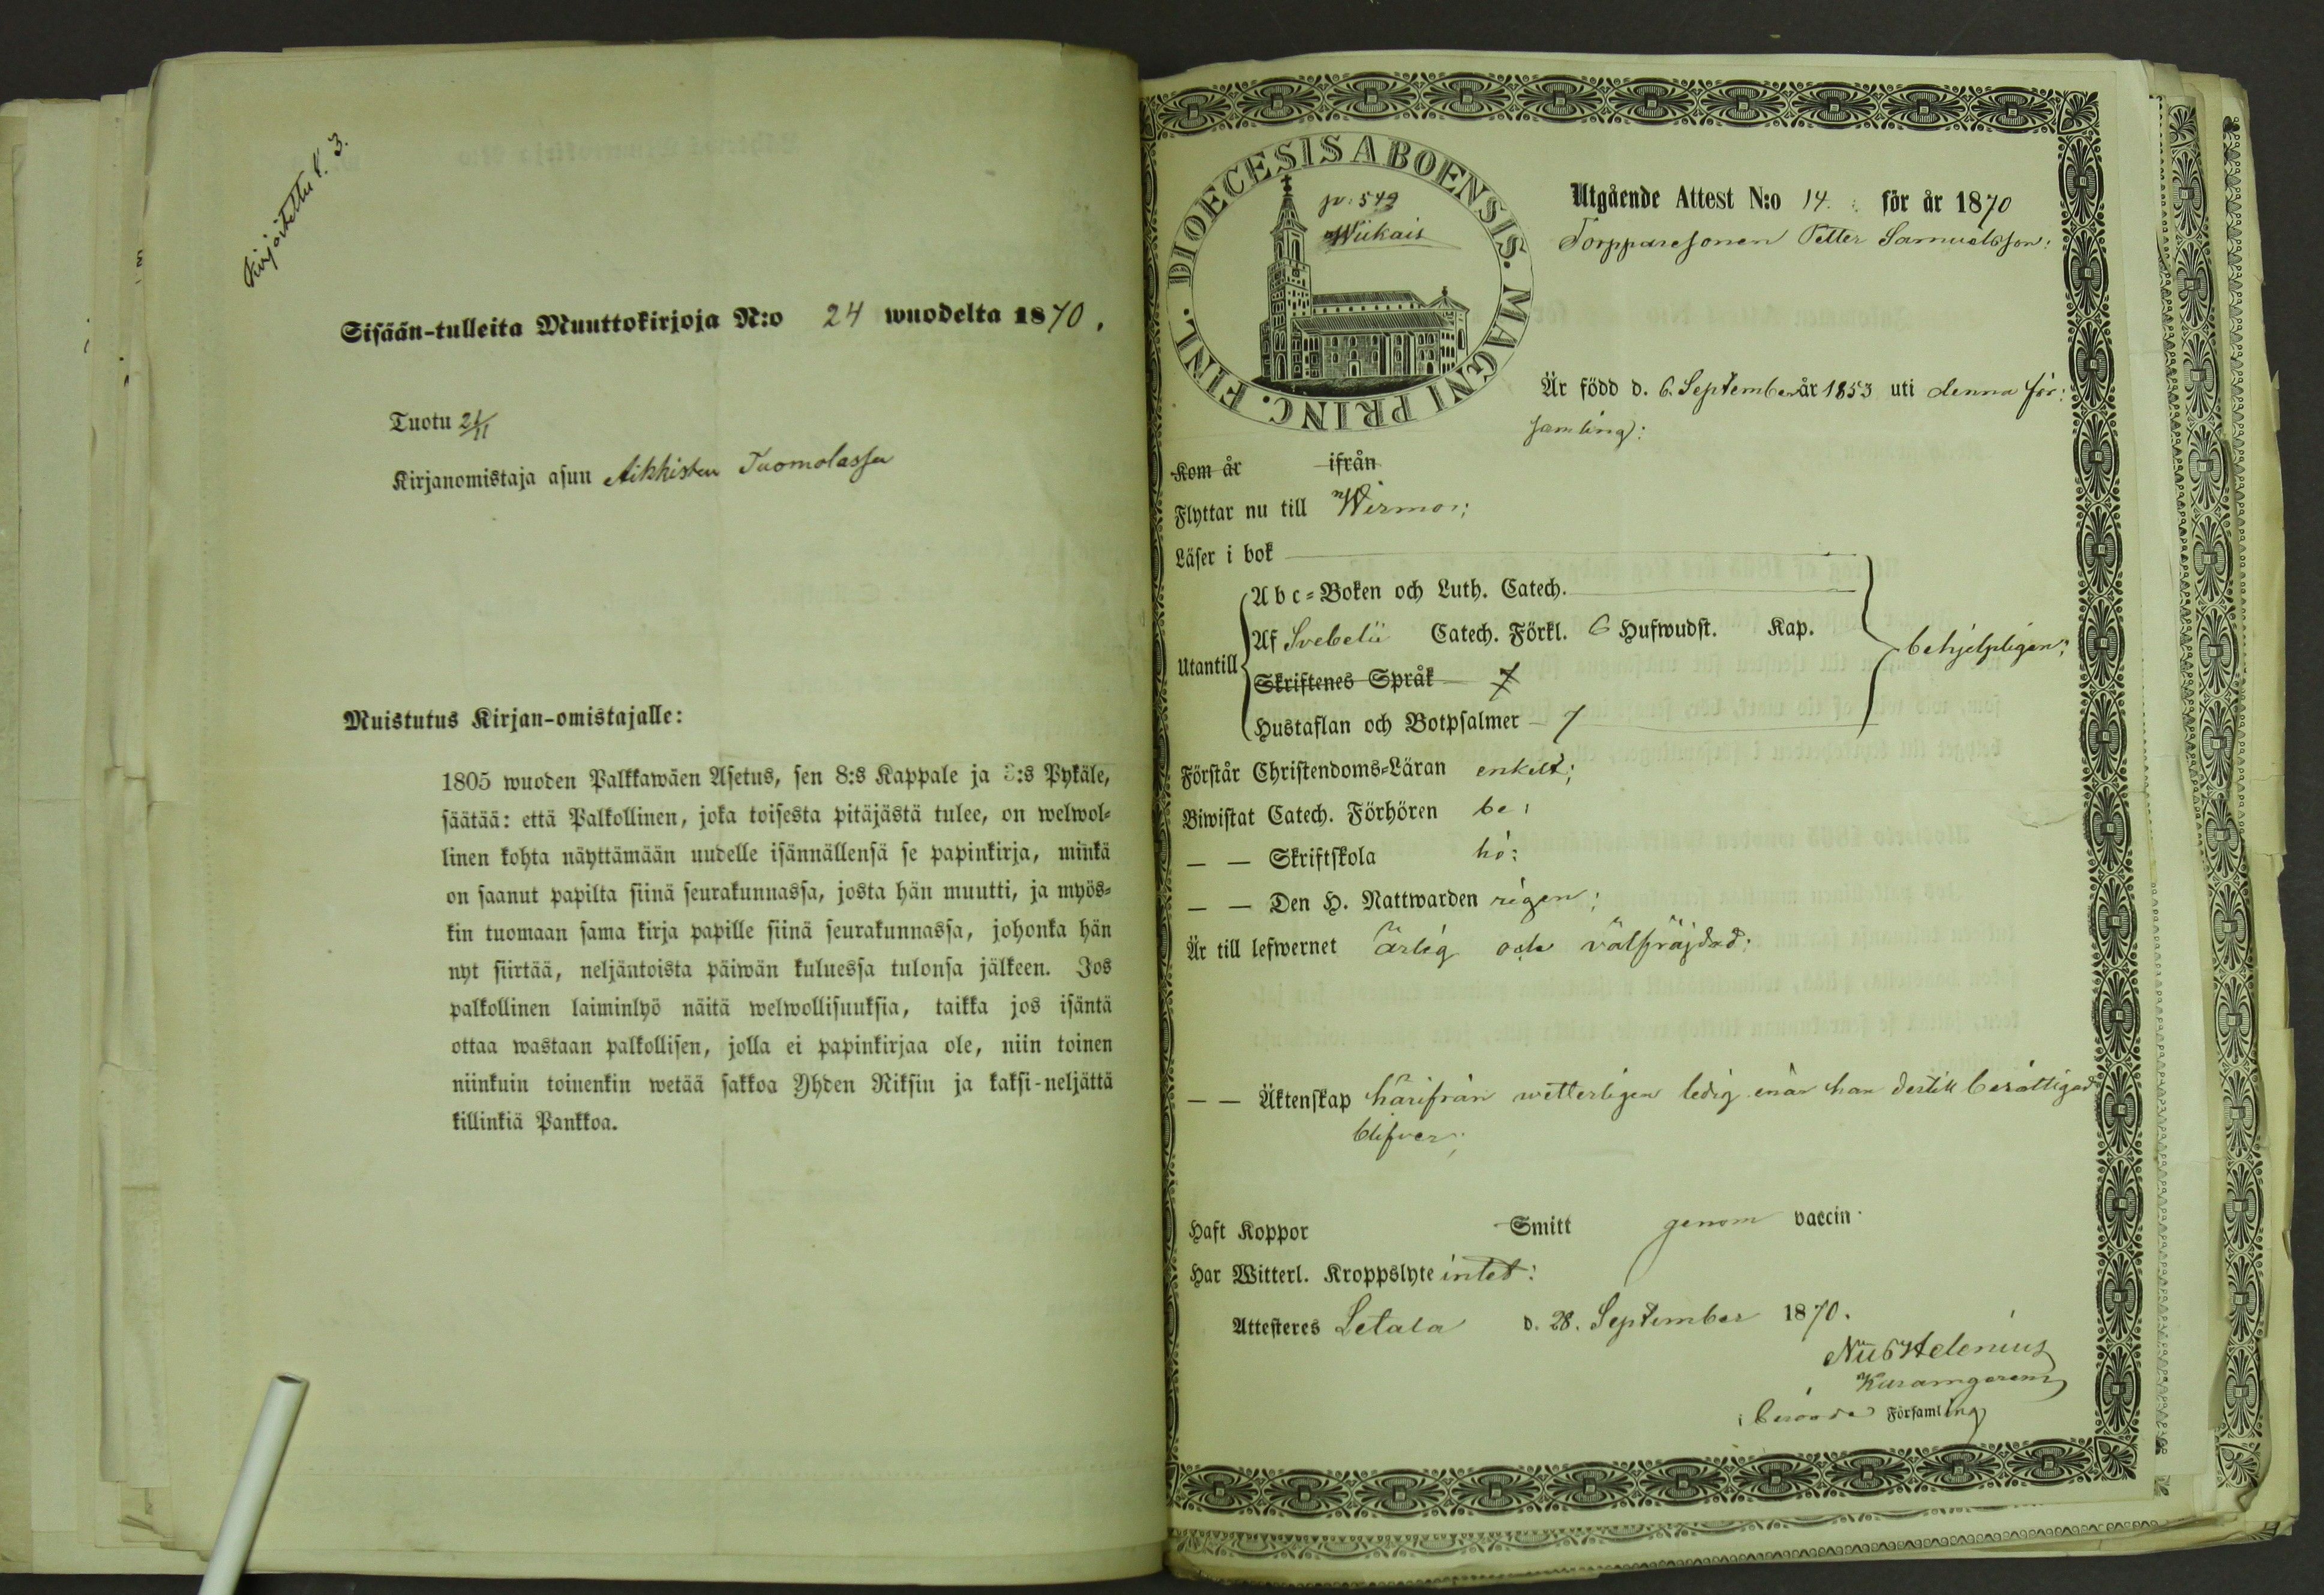 Kirjoitettu s. 3.
Sisään-tulleita Muuttokirjoja N:o 24 wuodelta 1870.
Tuotu 21/11
Kirjanomistaja asuu Aikkisten Tuomolassa
Muistutus Kirjan-omistajalle:
1805 wuoden Palkkawäen Asetus, sen 8:s Kappale ja 3:s Pykäle,
säätää: että Palkollinen, joka toisesta pitäjästä tulee, on welwol-
linen kohta näyttämään uudelle isännällensä se papinkirja, minkä
on saanut papilta siinä seurakunnassa, josta hän muutti, ja myös-
kin tuomaan sama kirja papille siinä seurakunnassa, johonka hän
nyt siirtää, neljäntoista päiwän kuluessa tulonsa jälkeen. Jos
palkollinen laiminlyö näitä welwollisuuksia, taikka jos isäntä
ottaa wastaan palkollisen, jolla ei papinkirjaa ole, niin toinen
niinkuin toinenkin wetää sakkoa Yhden Riksin ja kaksi-neljättä
killinkiä Pankkoa.
DIOECESIS ABOENSIS. MAGNI PRINC. FINL.
p: 549
Wiikais
Utgående Attest N:o 14. för år 1870
Torpparesonen Petter Samuelsson:
Är född d. 6. September år 1853 uti denna för:
samling:
Kom år ifrån
Flyttar nu till Wirmo;
Läser i bok
Utantill
A b c-Boken och Luth. Catech.
Af Svebelii Catech. Förkl. 6 Hufwudst. Kap.
behjelpligen;
Skriftenes Språk 7
Hustaflan och Botpsalmer 7
Förstår Christendoms-Läran enkelt;
Biwistat Catech. Förhören be:
— — Skriftskola hö:
— — Den H. Nattwarden rigen;
Är till lefwernet ärlig och välfräjdad:
— — Äktenskap härifrån wetterligen ledig enär han dertill berättigad
blifver;
Haft Koppor Smitt genom vaccin
Har Witterl. Kroppslyte intet:
Attesteres Letala d. 28. September 1870.
Helenius
i berörde Församling